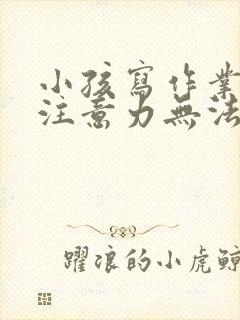 小孩寫作業
注意力無法
躍浪的小虎鯨